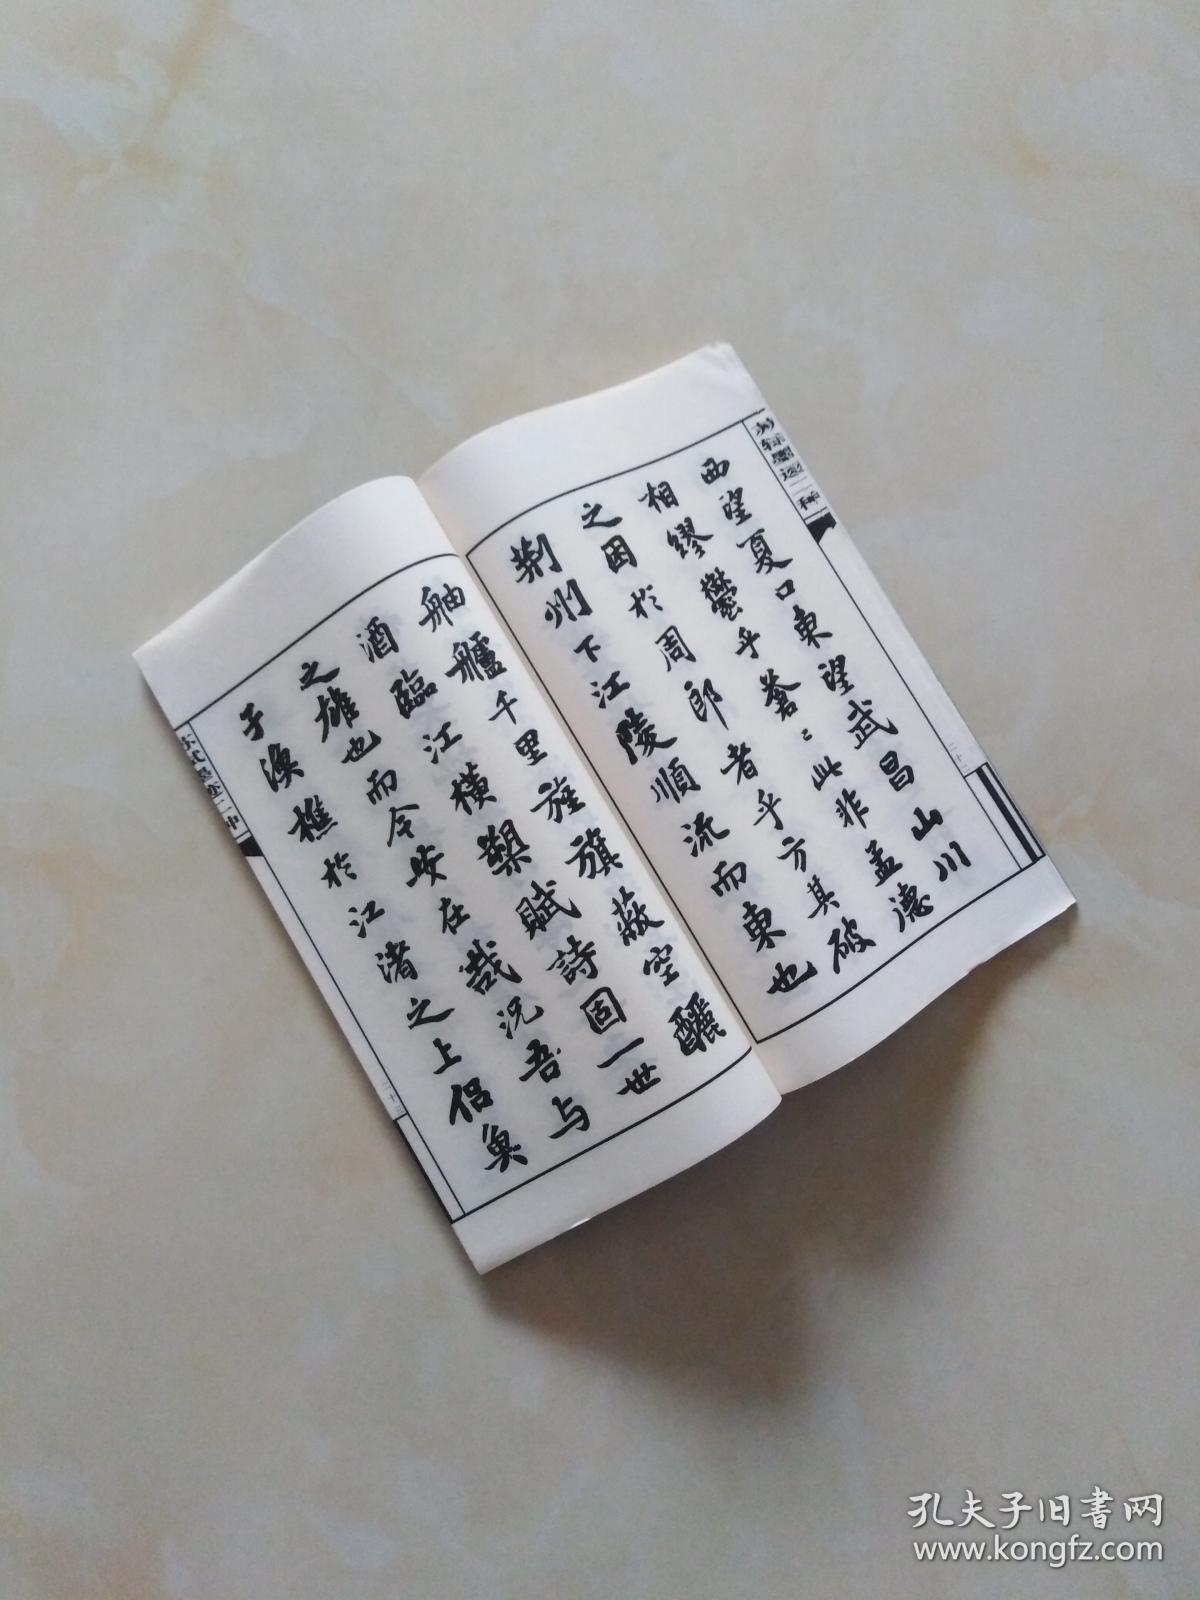 西望夏口東望武昌山川
相繆鬱乎蒼〻此非孟德
之困於周郎者乎方其破
荆州下江陵順流而東也
舳艫千里旌旗蔽空釃
酒臨江橫槊賦詩固一世
之雄也而今安在哉況吾与
子漁樵於江渚之上侶魚
二十二
孔夫子旧書网
www.kongfz.com